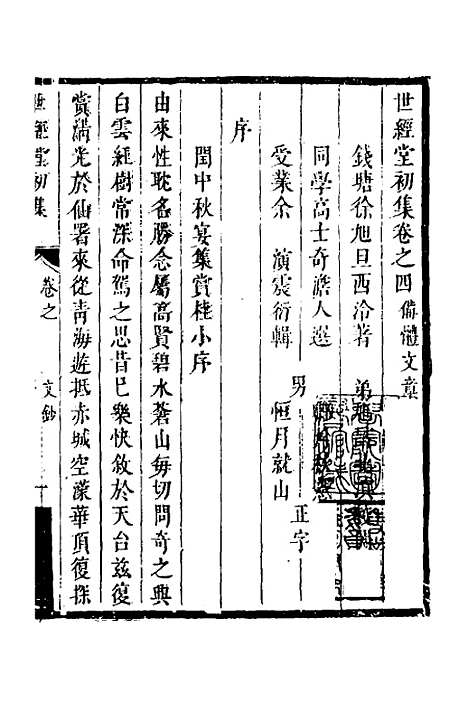 世經堂初集卷之四 儷體文章
錢塘徐旭旦西泠著 弟
同學高士奇澹人選
受業余 演震衍輯 男 恒月就山 正字
序
閏中秋宴集賞桂小序
由來性耽名勝念屬高賢碧水蒼山每切問奇之興
白雲紅樹常深命駕之思昔已樂快敘於天台茲復
賞滿光於仙署來從青海遊抵赤城空濛華頂復探
世經堂初集 卷之 文鈔